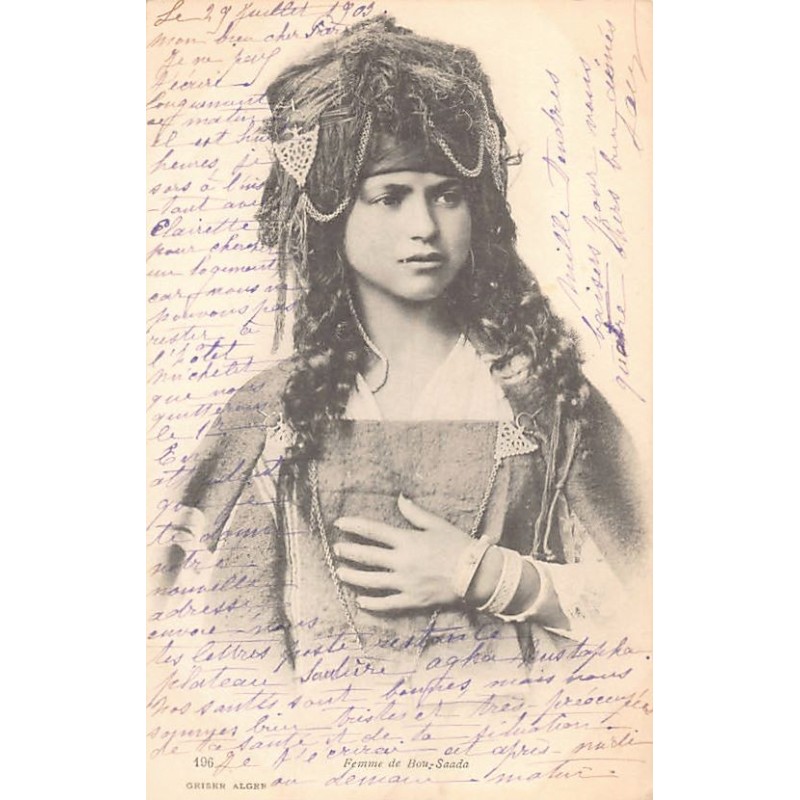 Le 29 Juillet 1903
mon bien cher
Je ne puis
t'écrire
longuement
ce matin
il est huit
heures, je
sors à l'ins
-tant avec
Clairette
pour chercher
un logement
car nous ne
pouvons pas
rester à
l'Hôtel
Michelet
que nous
quitterons
le 1er
En
attendant
que je
te donne
notre
nouvelle
adresse
envoie-nous
tes lettres poste restante
plateau Saulière agha Mustapha.
Nos santés sont bonnes mais nous
sommes bien tristes et très préoccupés
de ta santé et de la situation.
Je t'écrirai cet après-midi
ou demain matin.
Mille tendres
baisers pour vous
quatre chers bien aimés
106 Femme de Bou-Saada
GEISER ALGER